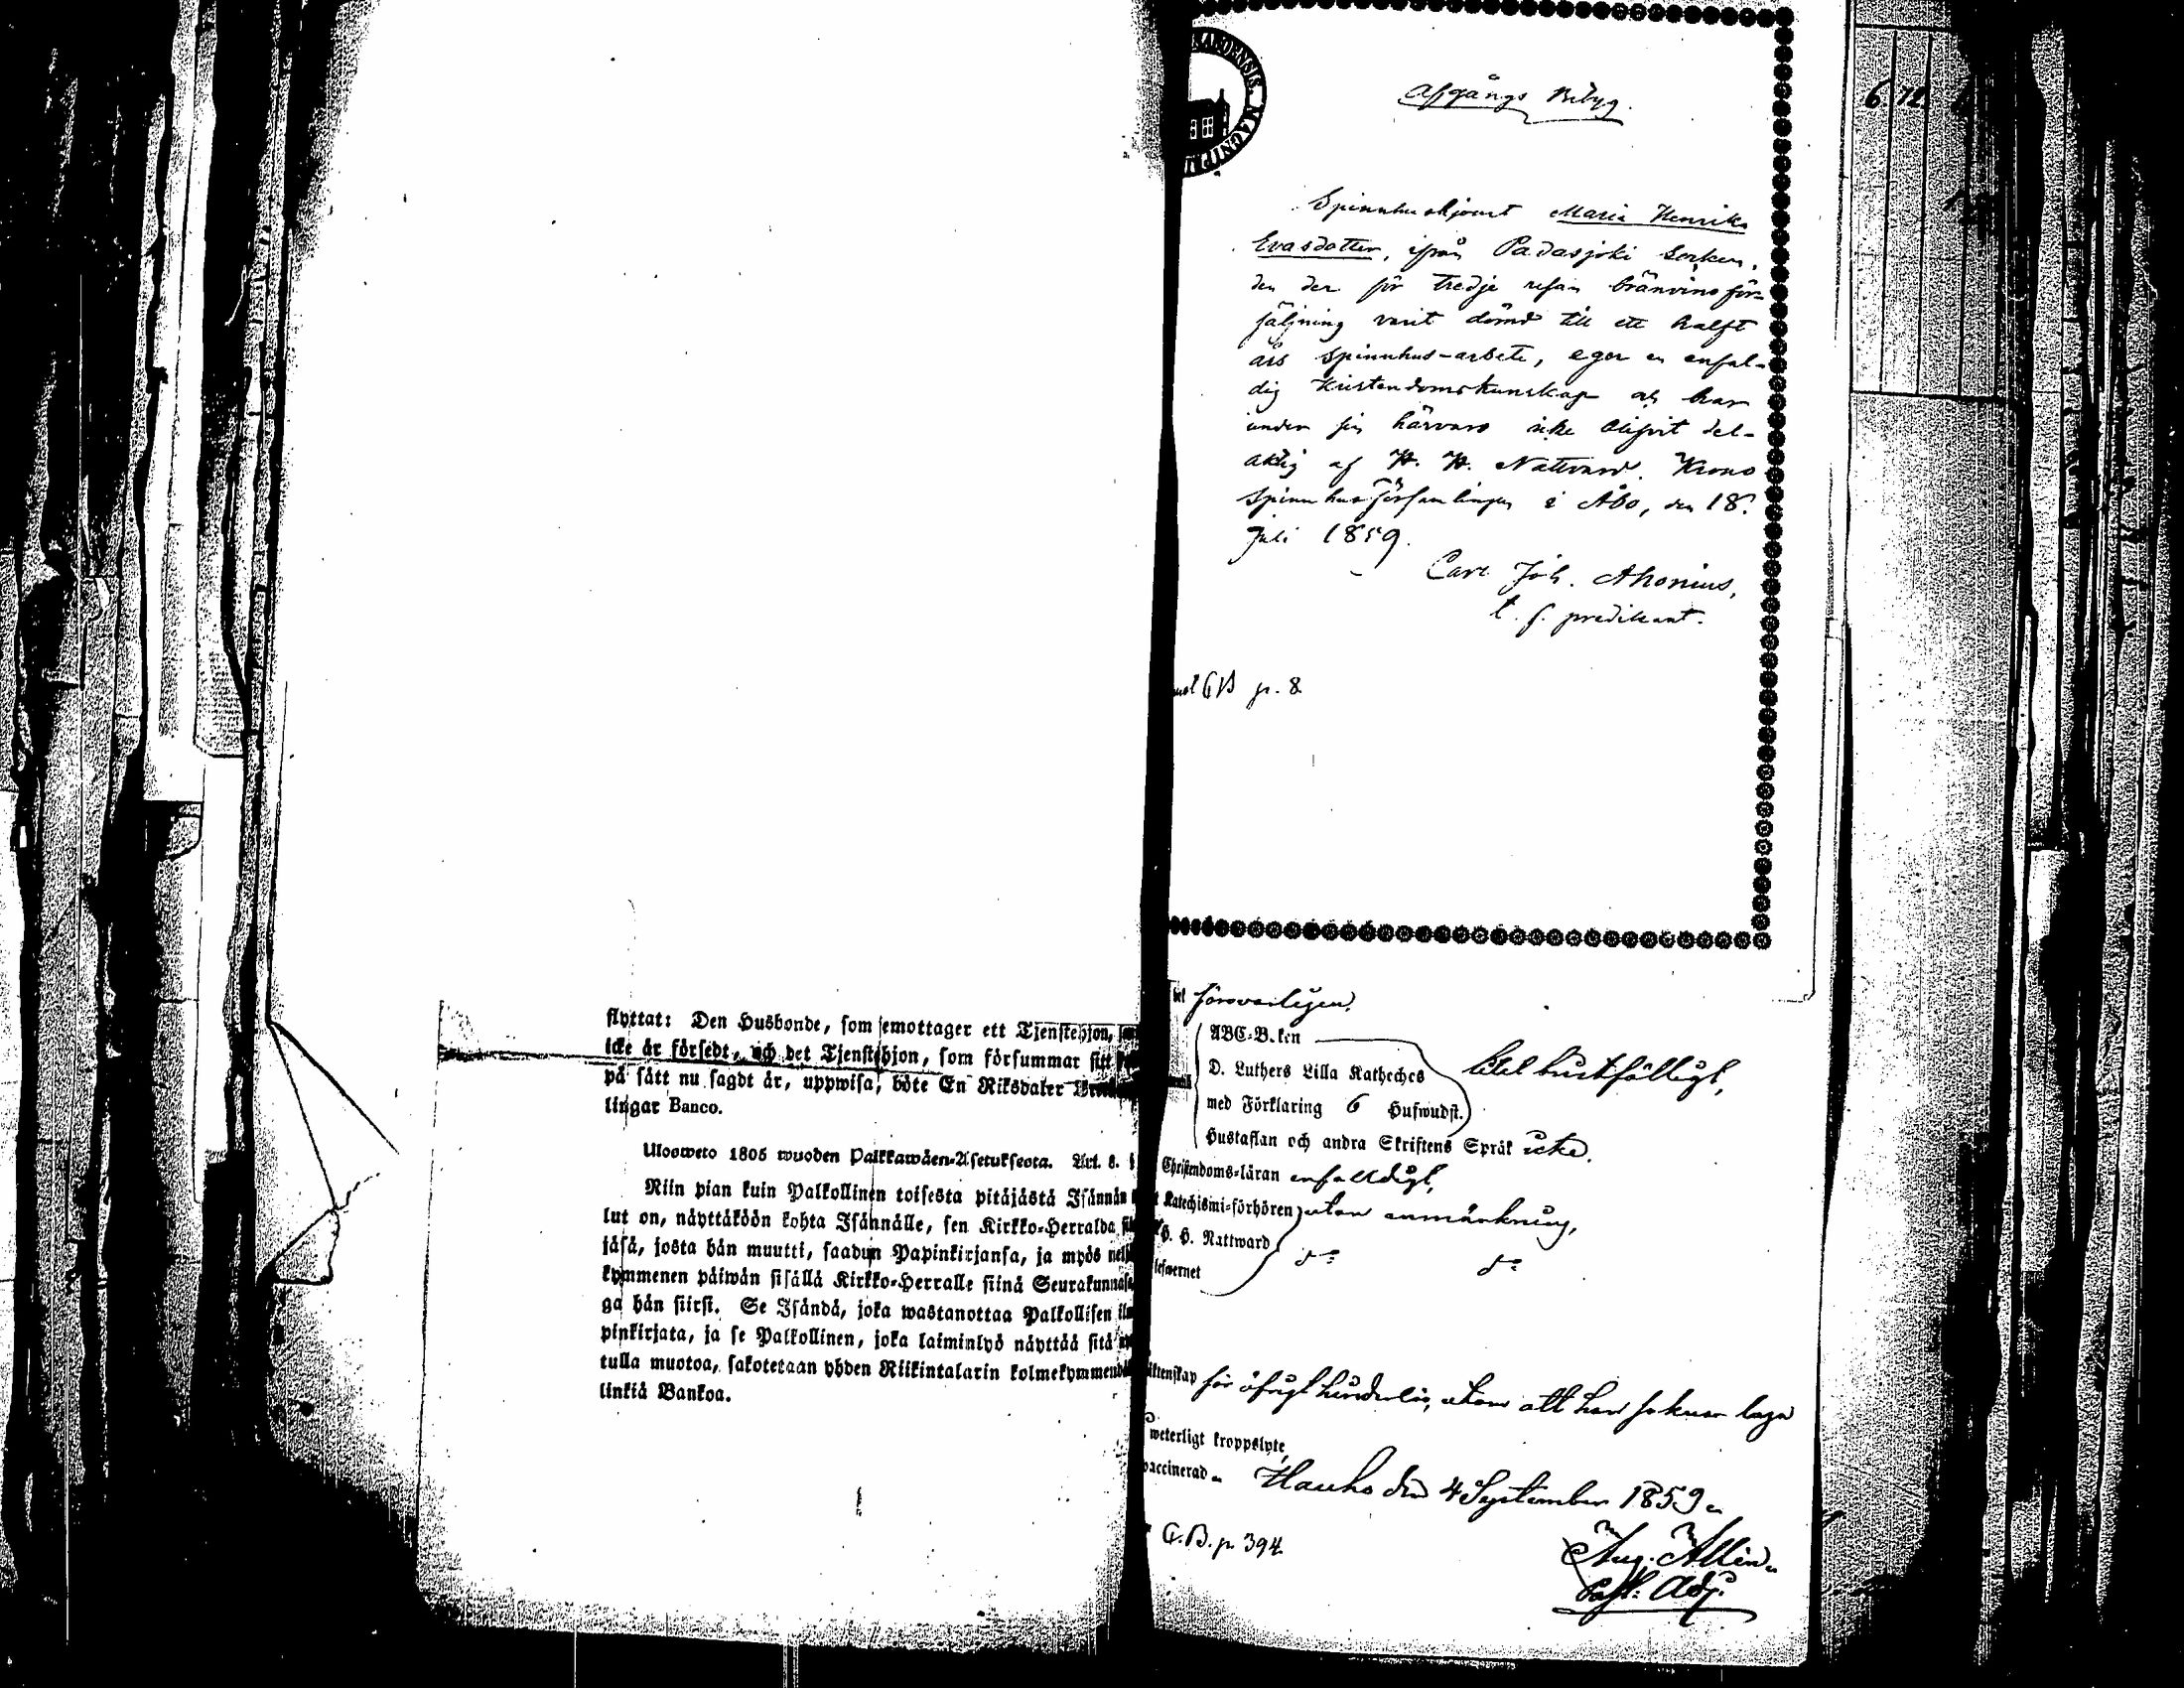 flyttat: Den Husbonde, som emottager ett Tjenstehjon,
icke är försedt, och det Tjenstehjon, som försummar sitt
på sätt nu sagdt är, uppwisa, böte En Riksdaler
lingar Banco.
Ulosweto 1805 wuoden Palkkawäen-Asetuksesta. Art. 8.
Niin pian kuin Palkollinen toisesta pitäjästä Isännän
lut on, näyttäköön kohta Isännälle, sen Kirkko-Herralda
jäsä, josta hän muutti, saadun Papinkirjansa, ja myös nel
kymmenen päiwän sisällä Kirkko-Herralle siinä Seurakunnasa
ga hän siirsi. Se Isändä, joka wastanottaa Palkollisen il
pinkirjata, ja se Palkollinen, joka laiminlyö näyttää sitä
tulla muotoa, sakotetaan yhden Riikintalarin kolmekymmendä
linkiä Bankoa.
ABOENSIS. MAGNI PRI
Afgångs Betyg.
Spinnhushjonet Maria Henriks
Evasdotter, ifrån Padasjoki Socken,
den der för tredje resan bränvinsför-
säljning varit dömd till ett halft
års Spinnhus-arbete, eger en enfal-
dig Kristendomskunskap och har
under sin härvaro icke blifvit del-
aktig af H. H. Nattvard. Krono
Spinnhusförsamlingen i Åbo, den 18.
Juli 1859.
Carl Joh. Ahonius,
t. f. predikant.
GB p. 8
6 12
försvarligen.
ABC-B.ken
D. Luthers Lilla Katheches
med Förklaring 6 Hufwudst.
Hustaflan och andra Skriftens Språk icke.
Christendoms-läran enfaldigt,
Katechismi-förhören utan anmärkning,
H. H. Nattward
lefwernet do do
äktenskap för öfrigt hinderlös, utom att han saknar laga
weterligt kroppslyte
vaccinerad Hauho den 4 September 1859
C.B. p. 394
Aug. Allén
Past. Adj.